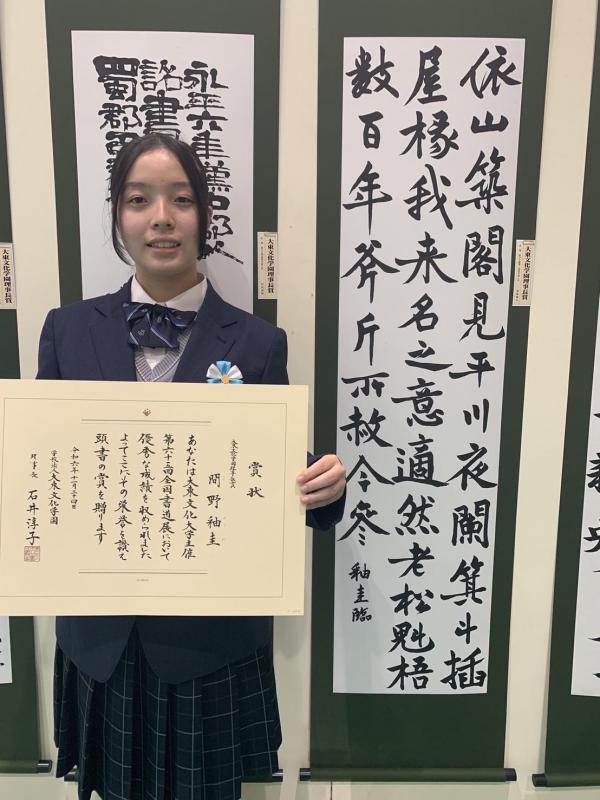 永平六年漢中郡以
詔書
蜀郡
大東文化学園理事長賞
依山築閣見平川夜闌箕斗插
屋椽我来名之意適然老松魁梧
数百年斧斤所赦今参
釉圭臨
大東文化学園理事長賞
大東文化学園理事長賞
大東文化学園理事長賞
賞状
間野釉圭
あなたは大東文化大学主催
第六十五回全国書道展において
優秀な成績を収められました
よってここにその栄誉を讃え
頭書の賞を贈ります
令和六年十一月二十四日
学校法人大東文化学園
理事長 石井淳子